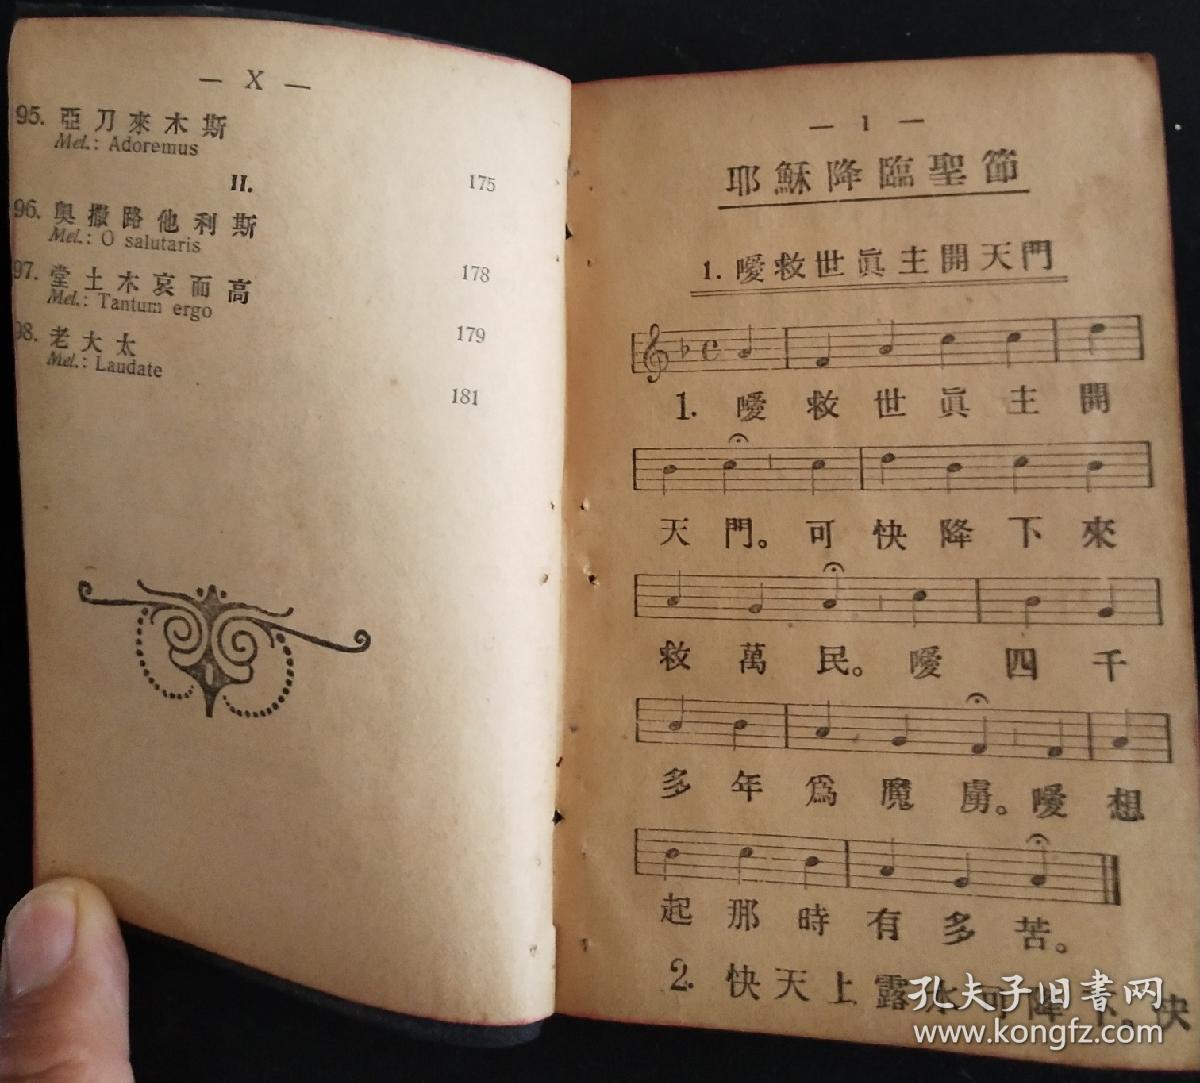 — X —
95. 亞刀來木斯
Mel.: Adoremus
II. 175
96. 奧撒路他利斯
Mel.: O salutaris
178
97. 堂土木哀而高
Mel.: Tantum ergo
179
98. 老大太
Mel.: Laudate
181
— 1 —
耶穌降臨聖節
1. 嗳救世眞主開天門
1. 嗳救世眞主開
天門。可快降下來
救萬民。嗳四千
多年爲魔虜。嗳想
起那時有多苦。
2. 快天上露水可降下。快
孔夫子旧書网
www.kongfz.com